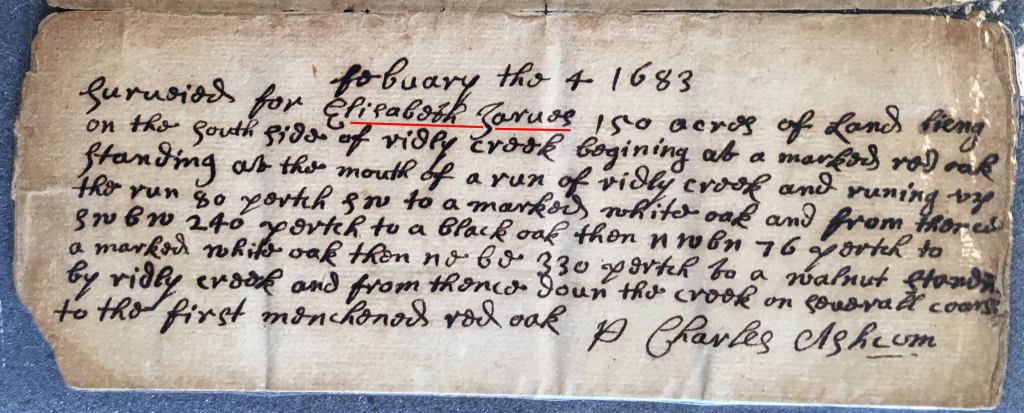 febuary the 4 1683
Surveied for Elisabeth Jarves 150 acres of Land lieng
on the South side of ridly creek begining at a marked red oak
standing at the mouth of a run of ridly creek and runing vp
the run 80 pertch sw to a marked white oak and from thence
sw b w 240 pertch to a black oak then n w b n 76 pertch to
a marked white oak then ne be 330 pertch to a walnut
by ridly creek and from thence doun the creek on severall
to the first menchened red oak
P Charles Ashcum